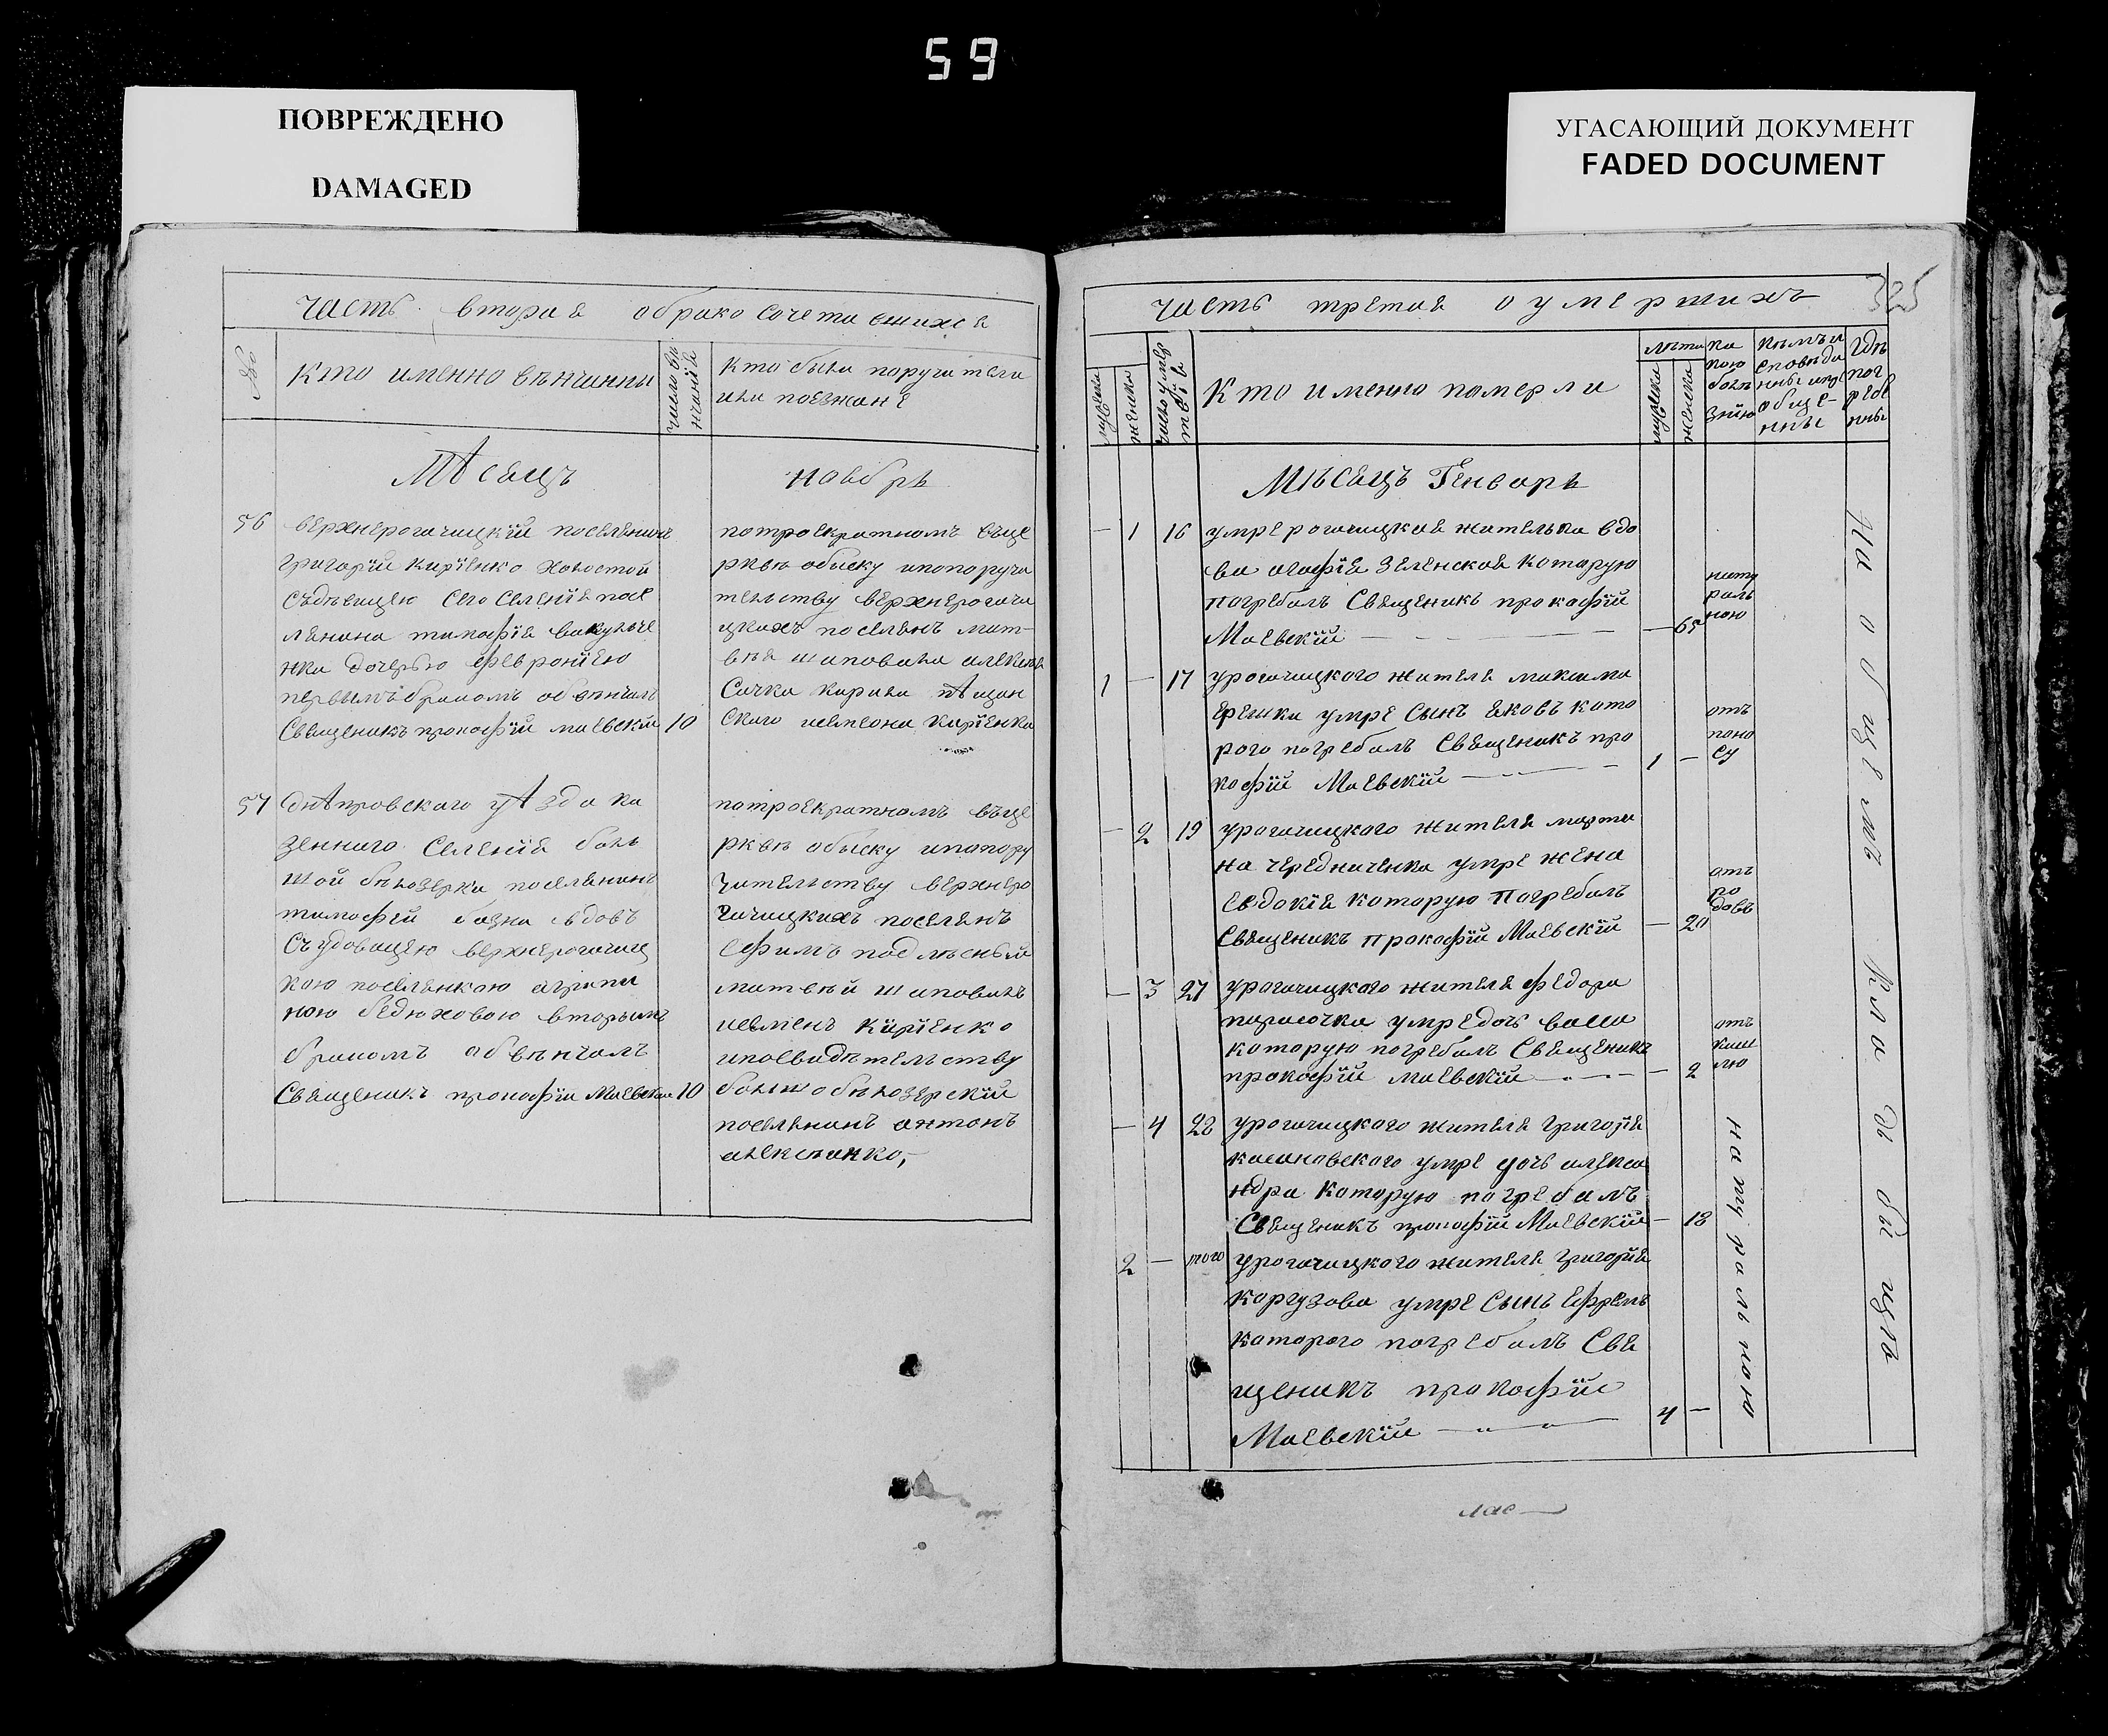 59
ПОВРЕЖДЕНО
DAMAGED
УГАСАЮЩИЙ ДОКУМЕНТ
FADED DOCUMENT
часть вторая о брако сочетавшихся
№
кто именно вѣнчанны
число вѣнчанія
кто были поручители
или поезжане
Мѣсецъ
ноябрь
56
верхнерогачицкій поселянинъ
григорій кирїенко холостой
съдѣвицею сего селенія посе
лянина тимофія вакуличе
нка дочерью февронїею
первымъ бракомъ обвѣнчалъ
Священикъ прокофій маевскїй 10
потроекратномъ въце
рквѣ обыску ипопоручи
тельству верхнерогачи
цкихъ поселянъ мат-
вѣя шаповала алексѣя
Сачка кирила пѣщан
ского исемиона кирїенка
57
днѣпровского уѣзда ка
зенного селенія боль
шой бѣлозерки поселянинъ
тимофей вдовъ
съудовицею верхнерогачиц
кою поселянкою агрипи
ною бедюховою вторымъ
бракомъ обвѣнчалъ
Священикъ прокофій Маевскїй 10
потроекратномъ въце
рквѣ обыску ипопору
чительству верхнеро
гачицкихъ поселянъ
ефимъ подлѣсный
матвѣй шаповалъ
исемиенъ кирїенко
ипосвидѣтельству
большобѣлозерскїй
поселянинъ антонъ
алексѣинко,-
325
часть третая о умершихъ
мужска
женска
число умертвія
кто именно померли
лѣта
мужска
женска
ка
кою
болѣ
знїю
кѣмъ и
сповѣда
нны ипр
обще-
нны
гдѣ
пог
ребе
нны
Мѣсецъ Генварь
— 1 16 умре рогачицкая жителька вдо
ва агафія зеленская которую
погребалъ Священикъ прокофій
Маевскїй — 65
нату
раль
ною
1 — 17 урогачицкого жителя максима
ерешка умре сынъ яковъ кото
рого погребалъ Священикъ про
кофій Маевскїй 1 —
отъ
поно
су
— 2 19 урогачицкого жителя марти
на чередниченка умре жена
евдокія которую погребалъ
Священикъ прокофій Маевскїй — 20
отъ
ро
довъ
— 3 27 урогачицкого жителя федора
парасочка умре дочь васса
которую погребалъ Священикъ
прокофій маевскїй — 2
отъ
каш
лю
— 4 28 урогачицкого жителя григорія
касановского умре дочь алекса
ндра которую погребалъ
Священикъ прокофій Маевскїй — 18
2 — того урогачицкого жителя григорія
каргузова умре сынъ ефремъ
которого погребалъ Свя
щеникъ прокофій
Маевскїй 4 —
натуральною
На общемъ кладбищѣ